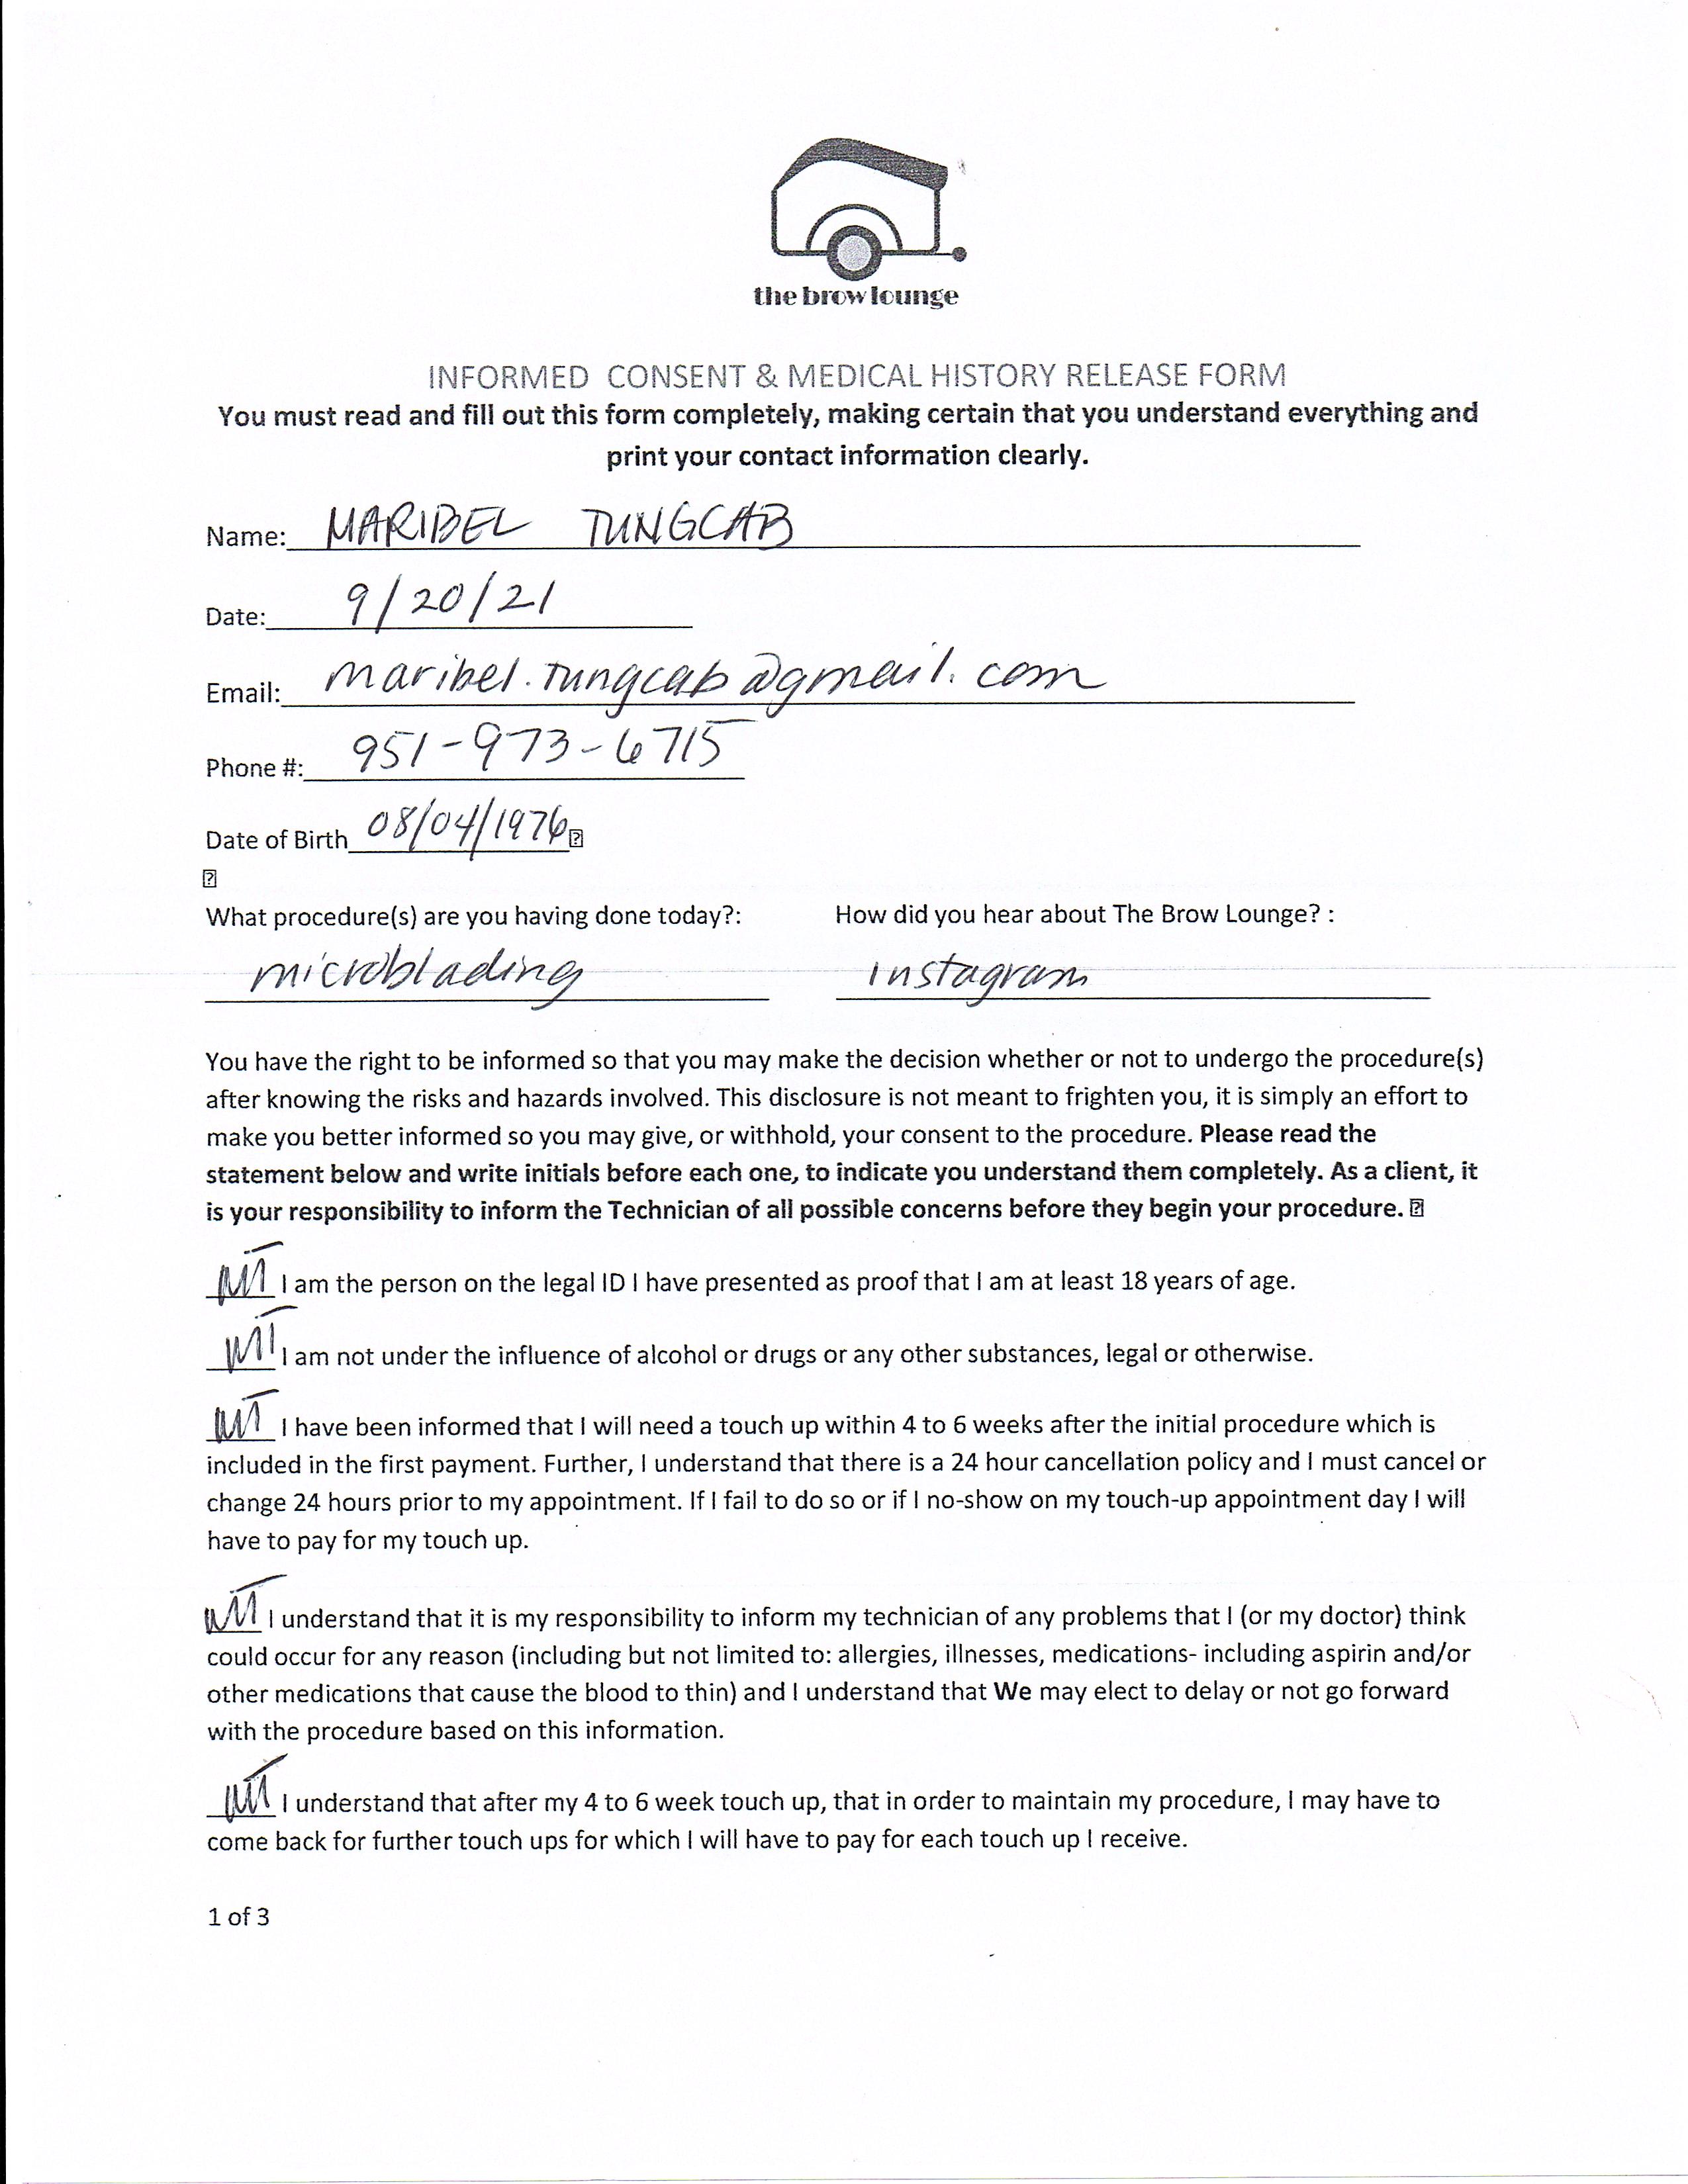 the brow lounge
INFORMED CONSENT & MEDICAL HISTORY RELEASE FORM
You must read and fill out this form completely, making certain that you understand everything and
print your contact information clearly.
Name: MARIBEL TUNGCAB
Date: 9/20/21
Email: maribel.tungcab@gmail.com
Phone #: 951-973-6715
Date of Birth 08/04/1976
What procedure(s) are you having done today?: How did you hear about The Brow Lounge? :
microblading instagram
You have the right to be informed so that you may make the decision whether or not to undergo the procedure(s)
after knowing the risks and hazards involved. This disclosure is not meant to frighten you, it is simply an effort to
make you better informed so you may give, or withhold, your consent to the procedure. Please read the
statement below and write initials before each one, to indicate you understand them completely. As a client, it
is your responsibility to inform the Technician of all possible concerns before they begin your procedure.
MT I am the person on the legal ID I have presented as proof that I am at least 18 years of age.
MT I am not under the influence of alcohol or drugs or any other substances, legal or otherwise.
MT I have been informed that I will need a touch up within 4 to 6 weeks after the initial procedure which is
included in the first payment. Further, I understand that there is a 24 hour cancellation policy and I must cancel or
change 24 hours prior to my appointment. If I fail to do so or if I no-show on my touch-up appointment day I will
have to pay for my touch up.
MT I understand that it is my responsibility to inform my technician of any problems that I (or my doctor) think
could occur for any reason (including but not limited to: allergies, illnesses, medications- including aspirin and/or
other medications that cause the blood to thin) and I understand that We may elect to delay or not go forward
with the procedure based on this information.
MT I understand that after my 4 to 6 week touch up, that in order to maintain my procedure, I may have to
come back for further touch ups for which I will have to pay for each touch up I receive.
1 of 3